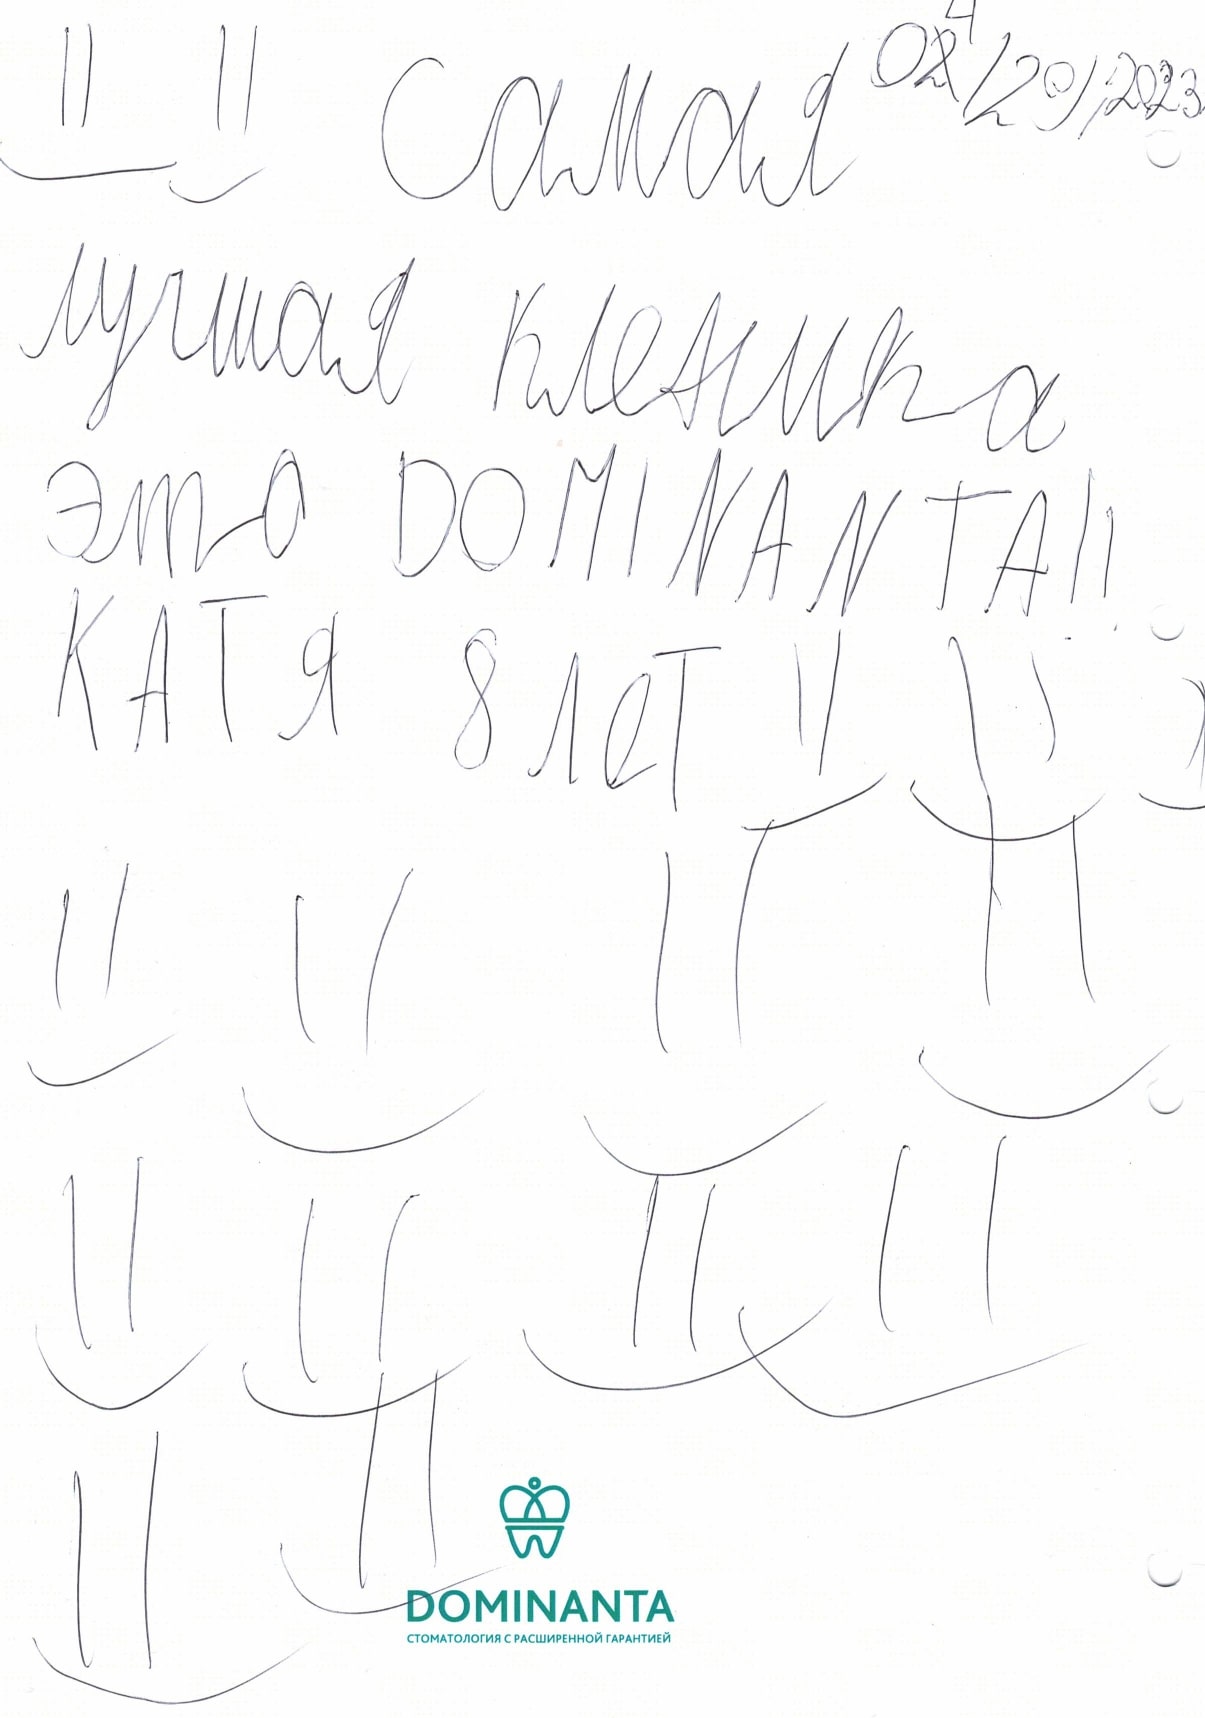 Самая 02/20/2023
4
лучшая кленика
это DOMINANTA!!
КАТЯ 8 лет
DOMINANTA
СТОМАТОЛОГИЯ С РАСШИРЕННОЙ ГАРАНТИЕЙ